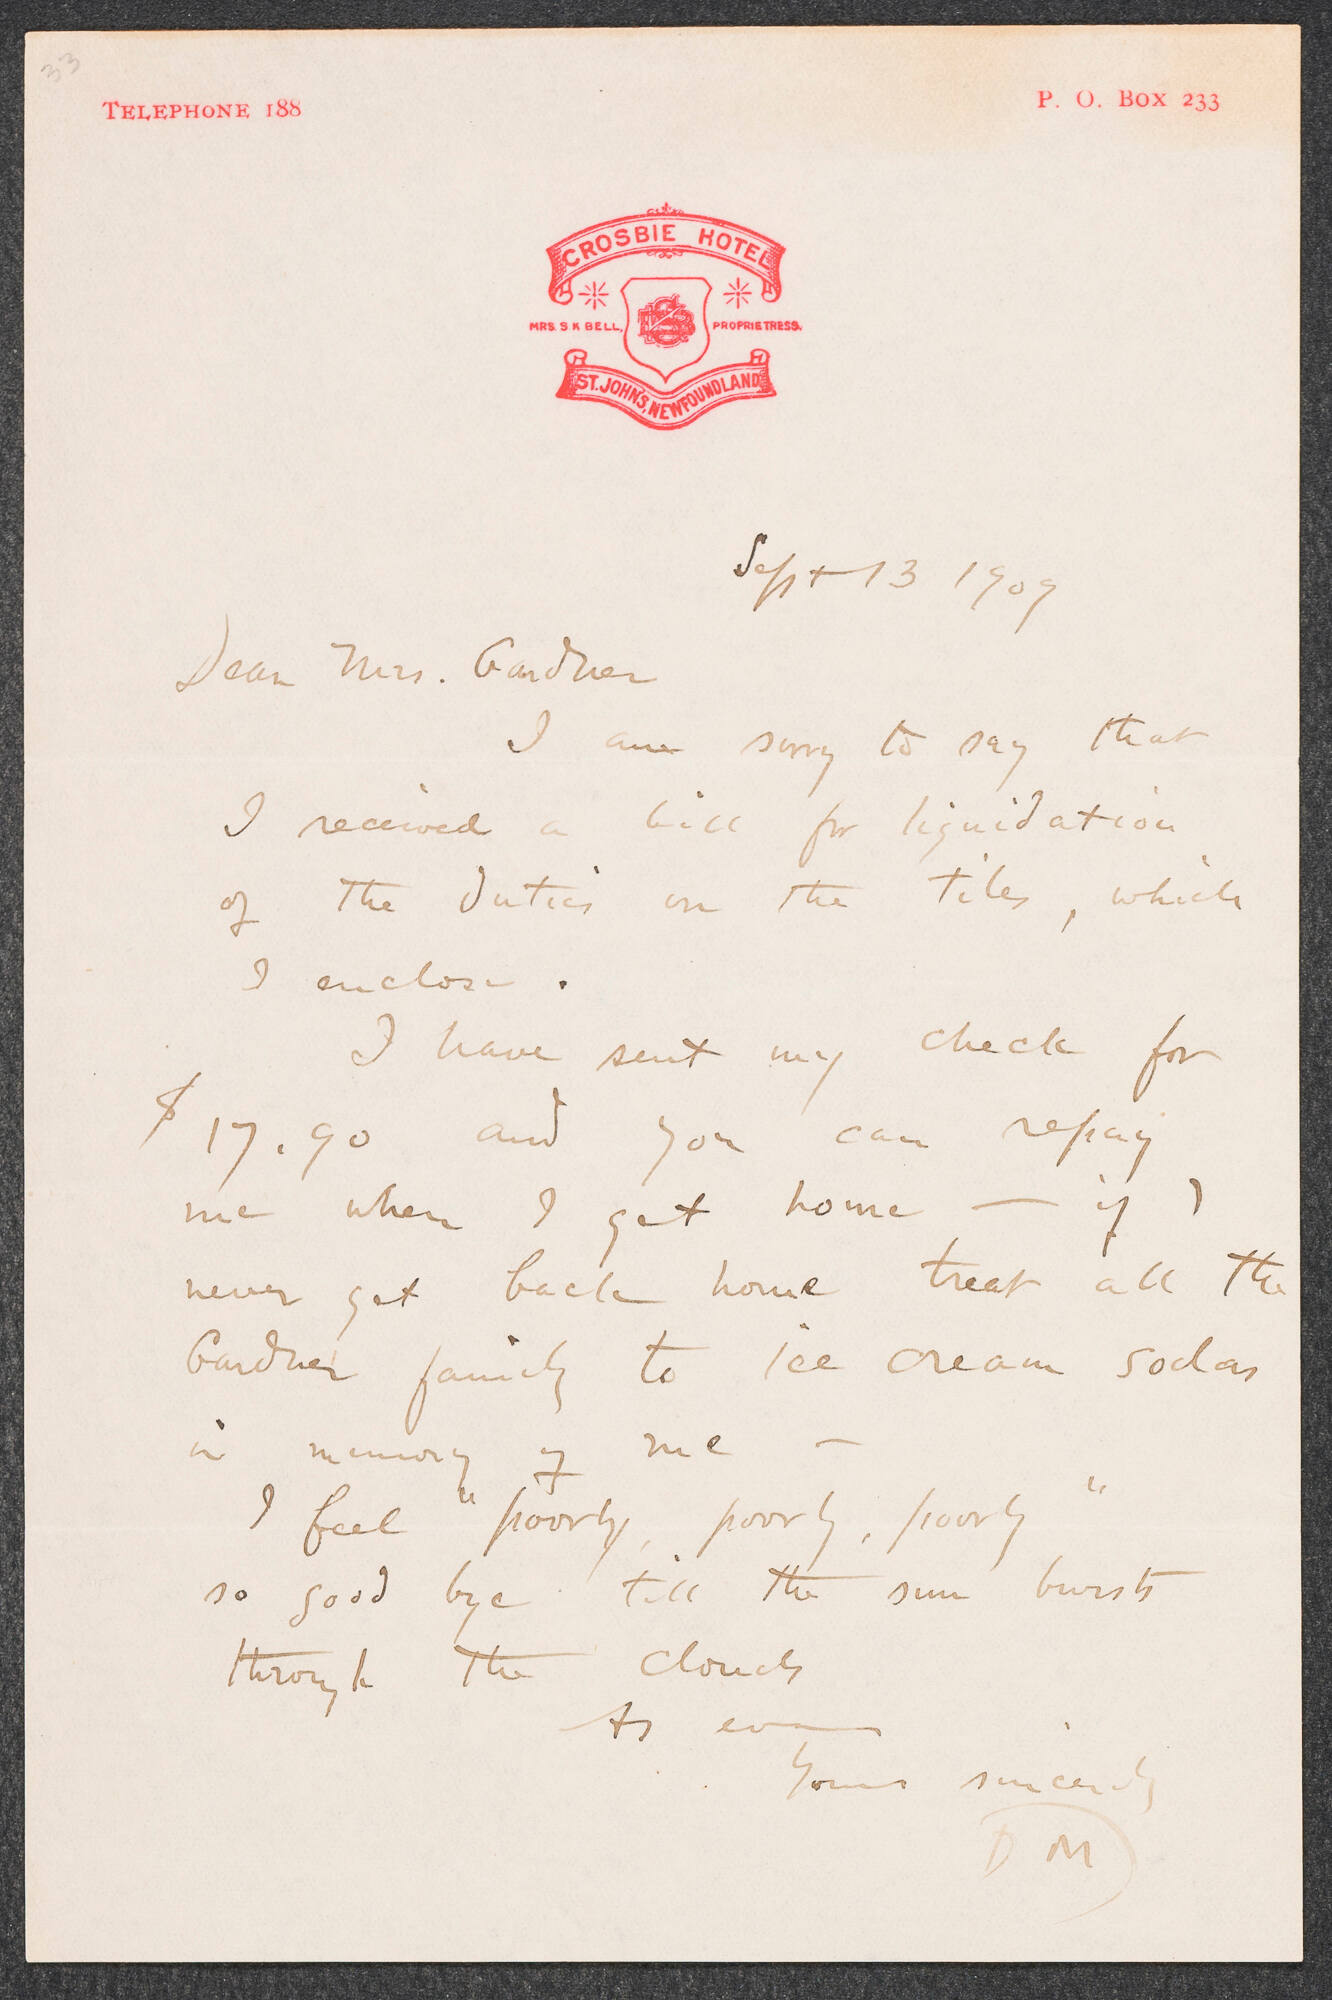 33
TELEPHONE 188
P. O. BOX 233
CROSBIE HOTEL
MRS. S K BELL, PROPRIETRESS.
ST. JOHN'S, NEWFOUNDLAND
Sept 13 1909
Dear Mrs. Gardner
I am sorry to say that
I received a bill for liquidation
of the duties on the tiles, which
I enclose.
I have sent my check for
$17.90 and you can repay
me when I get home — if I
never get back home treat all the
Gardner family to ice cream sodas
in memory of me —
I feel "poorly, poorly, poorly"
so good bye till the sun bursts
through the clouds
As ever
Yours sincerely
DM